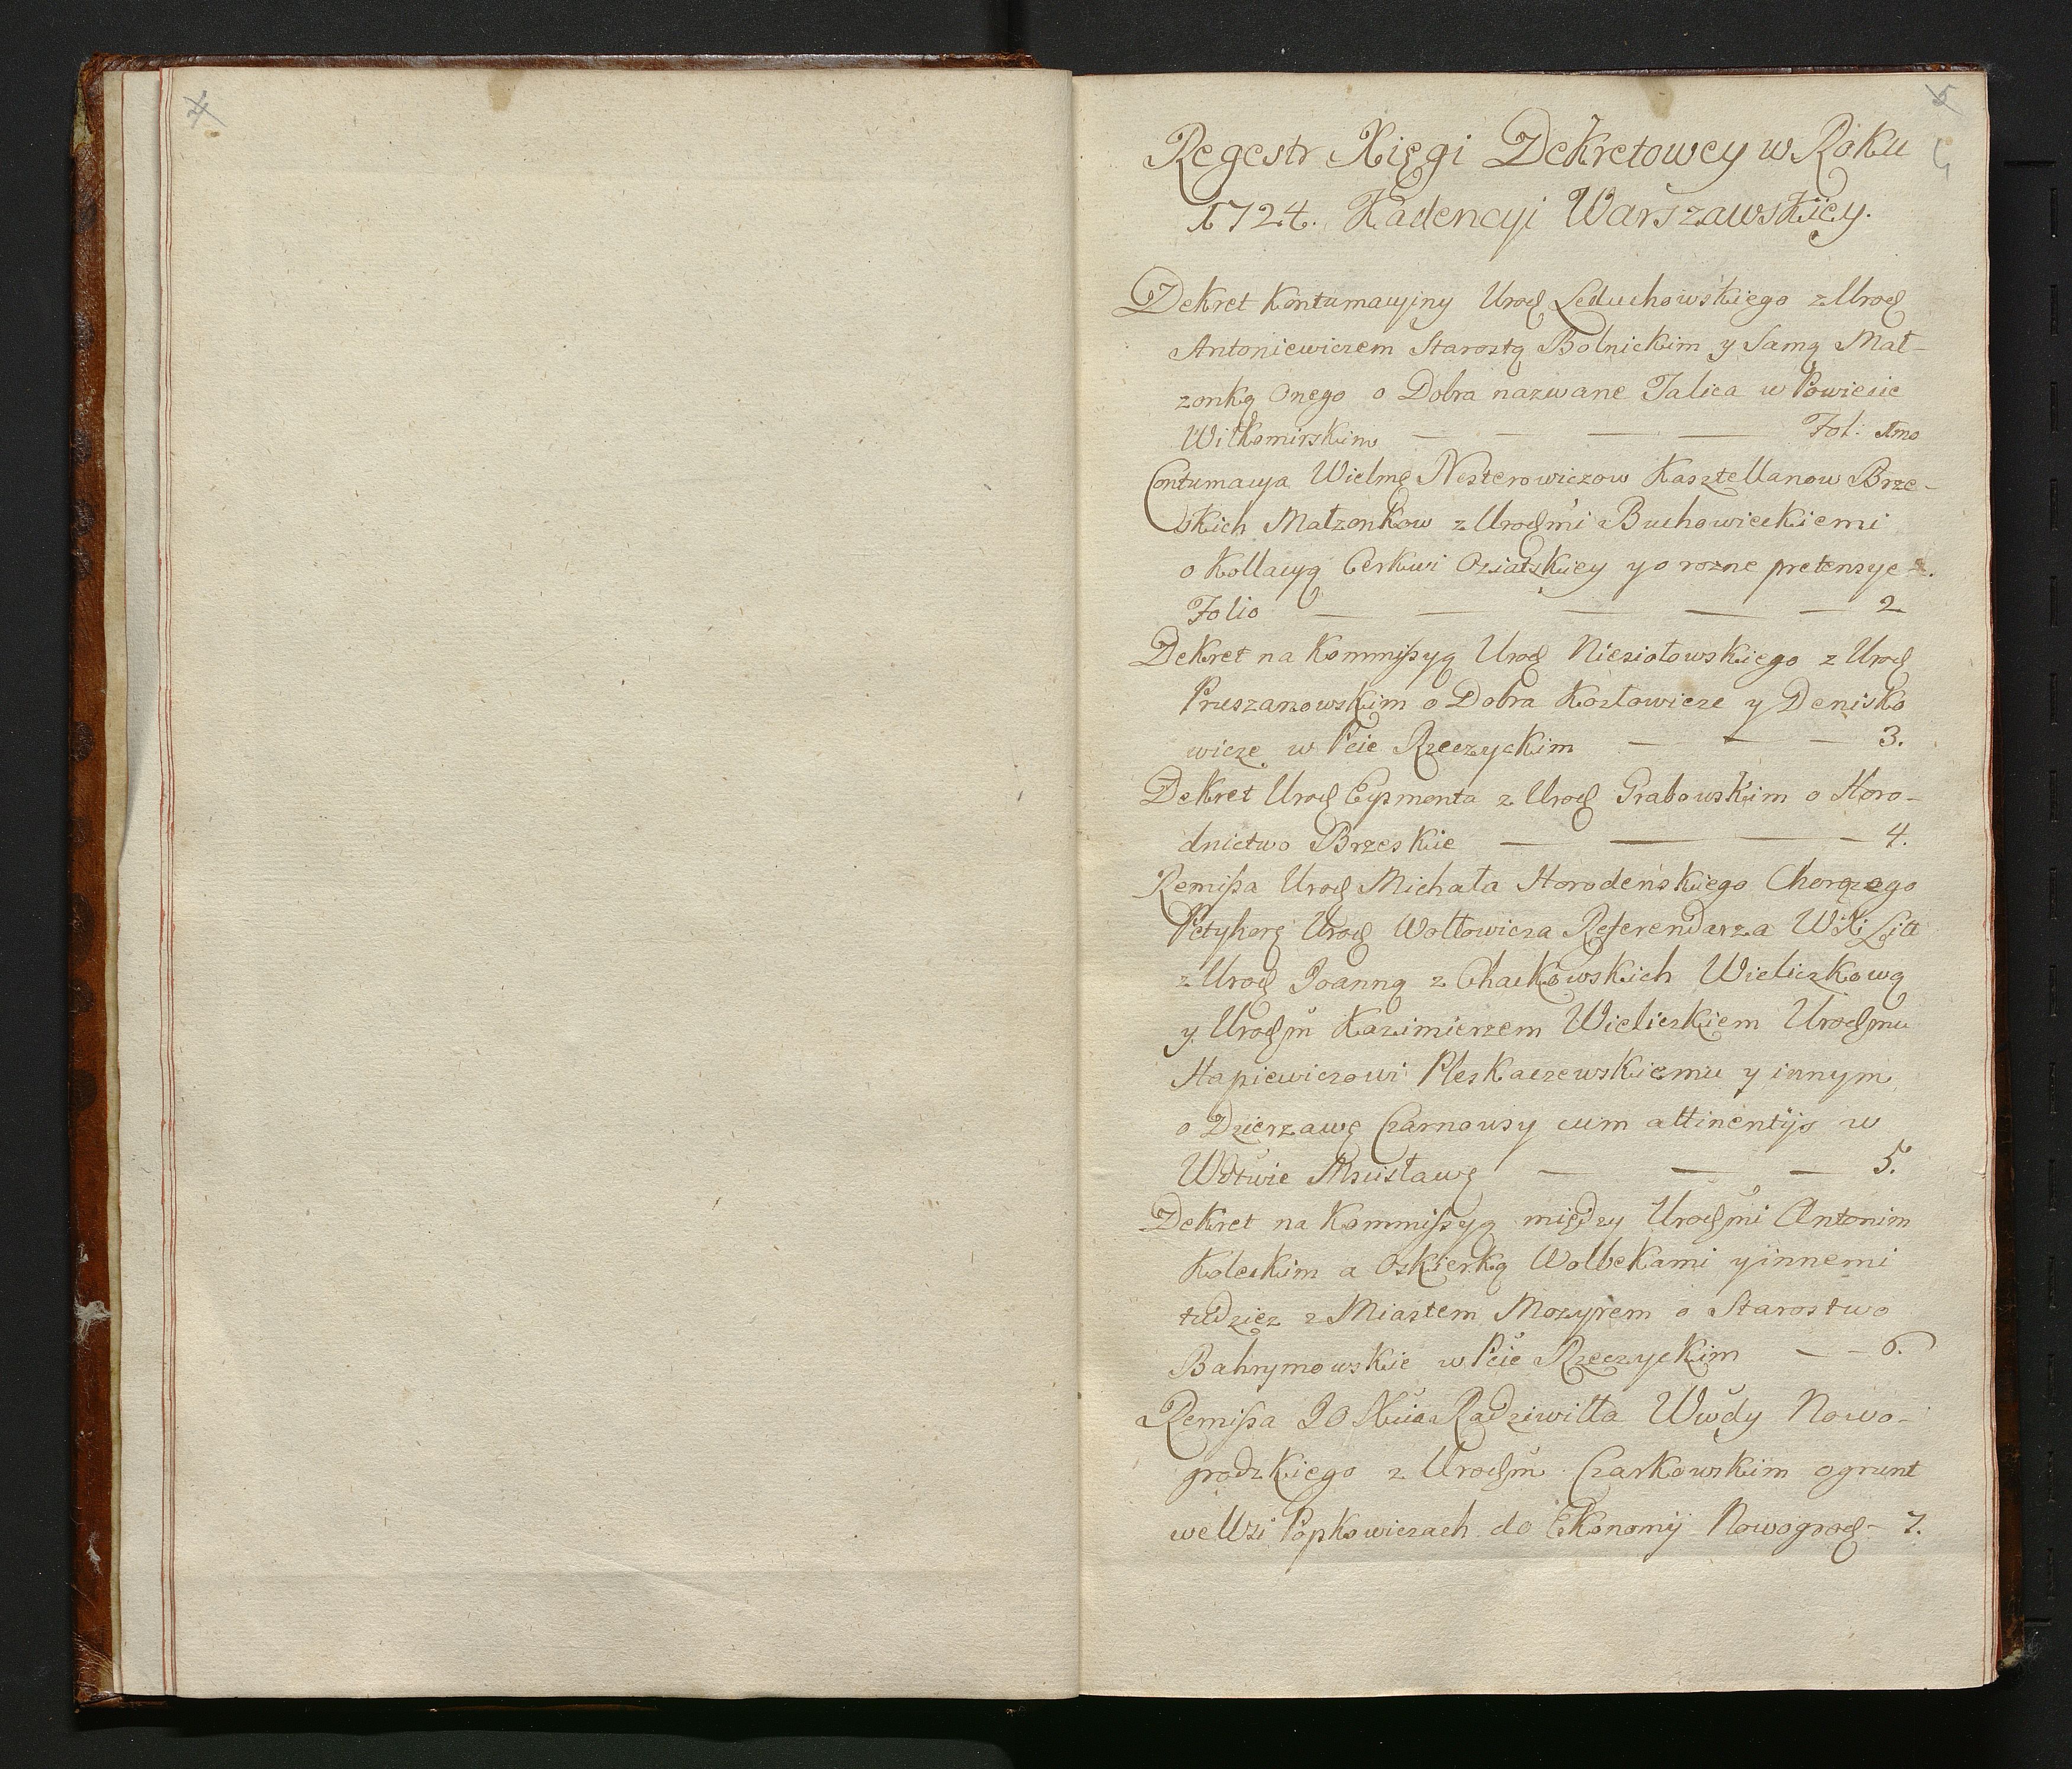 4
5
Regestr Xięgi Dekretowey w Roku
1724. Kadencyi Warszawskiey.
Dekret Kontumacyiny Urod Leduchowskiego z Urod
Antoniewiczem Starostą Bolnickim y Samą Mał-
zonką Onego o Dobra nazwane Jalica w Powiecie
Wiłkomirskim — — — — Fol: 1mo
Contumacya Wielmę Nesterowiczow Kasztellanow Brze-
skich Małzonkow z Urodmi Buchowieckiemi
o Kollacyą Cerkwi Oziatskiey y o rozne pretensye
Folio — — — — — 2
Dekret na Kommissyą Urod Niesiołowskiego z Urod
Pruszanowskim o Dobra Kozłowicze y Denisko
wicze w Pcie Rzeczyckim — — — 3.
Dekret Urod Eysmonta z Urod Grabowskim o Horo-
dnictwo Brzeskie — — — — 4.
Remissa Urod Michała Horodeńskiego Chorązego
Petyhorę Urod Wołłowicza Referendarza WXLitt
z Urod Joanną z Chackowskich Wieliczkową
y Urodm Kazimierzem Wieliczkiem Urodmu
Hapiewiczowi Pleskaczewskiemu y innym
o Dzierzawę Czarnousy cum attinentijs w
Wdztwie Mscisławę — — — 5.
Dekret na Kommissyą między Urodmi Antonim
Koleckim a Oskierką Wolbekami y innemi
tudziez z Miastem Mozyrem o Starostwo
Bahrymowskie w Pcie Rzeczyckim — — 6.
Remissa JO Xcia Radziwiłła Wwdy Nowo-
grodzkiego z Urodm Czarkowskim o grunt
we Wsi Popkowiczach do Ekonomij Nowogrod — 7.